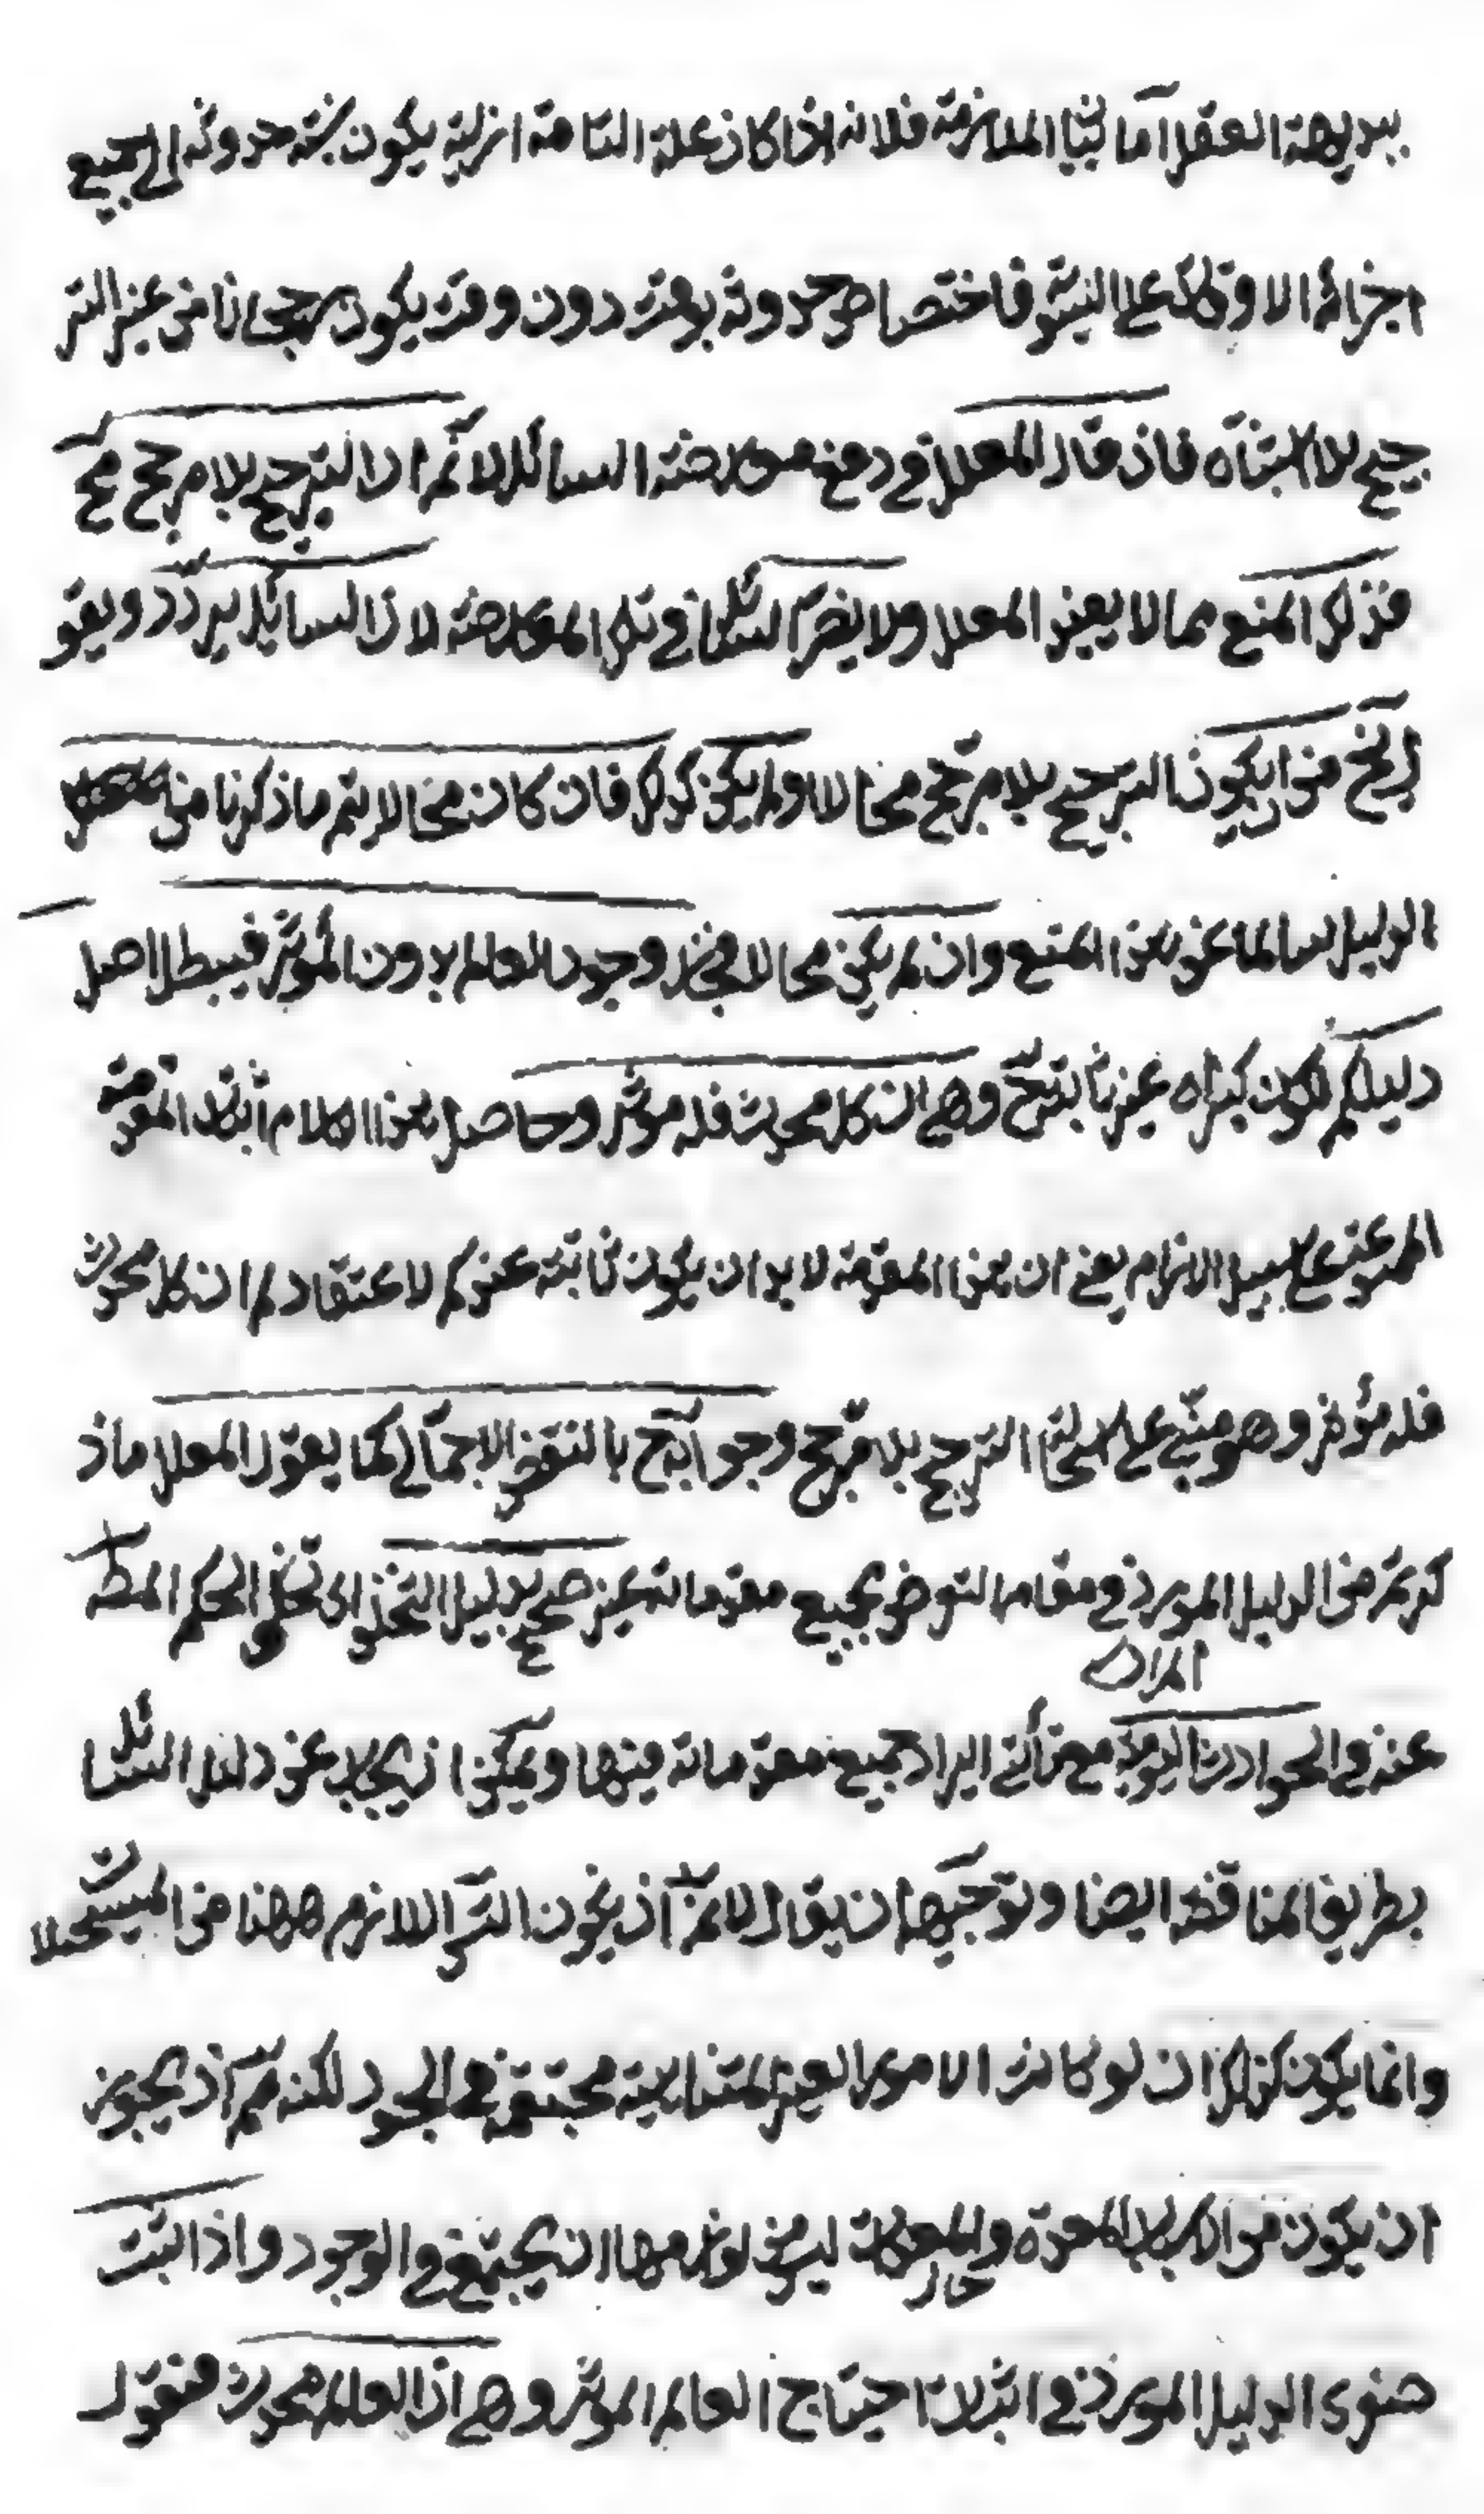 ببديهة العقل اما بيا الملازمة فلانه اذا كان علة التامة ازلية يكون نسبة حدوثه الى جميع
اجزاء الاوقات على السوية فاختصاص حدوثه بوقت دون وقت يكون رجحانا من غير التر
جيح بلا اشتباه فان قال المعلل في دفع معارضة السائل لا نم ان الترجيح بلا مرجح مح
فذلك المنع مما لا يفيد المعلل ولا يضر السائل في تلك المعارضة لان السائل يردد ويقو
ل لا يخ من ان يكون الترجيح بلا مرجح محالا او لم يكن كذلك فان كان محالا يتم ماذكرنا من
الدليل سالما عن هذا المنع وان لم يكن محالا فيجوز وجود العالم بدون المؤثر فيبطل اصل
دليلكم لكون كبراه غير ثابت ح وهي ان كل محدث فله مؤثر وحاصل هذا الكلام اثبات المقدمة
الممنوعة على سبيل الالزام يعني ان هذا المقدمة لا بد ان يكون ثابتة عندكم لاعتقادكم ان كل محدث
فله مؤثر وهو مبني على استحالة الترجيح بلا مرجح وجوابه ح بالنقض الاجمالي كما يقول المعلل ماذ
كرتم من الدليل المورد في مقام التعرض بجميع مقدماته غير صحيح بدليل التخلف اى تخلف الحكم المط
المراد
عنه في الحوادث اليومية مع تأتي ايراد جميع مقدماته فيها ويمكن ان يجاب عن دليل السائل
بطريق المناقضة ايضا وتوجيهها ان يقال لا نم ان يكون التس اللازم ههنا من المستحيلات
وانما يكون كذلك ان لو كانت الامور الغير المتناهية مجتمعة في الوجود لكنه مم اذ يجوز
ان يكون من الاسباب المعدة والمعدات ليس من لوازمها ان يجتمع في الوجود واذا ثبت
صغرى الدليل المورد في اثبات احتياج العالم المؤثر وهي ان العالم محدث فنقول